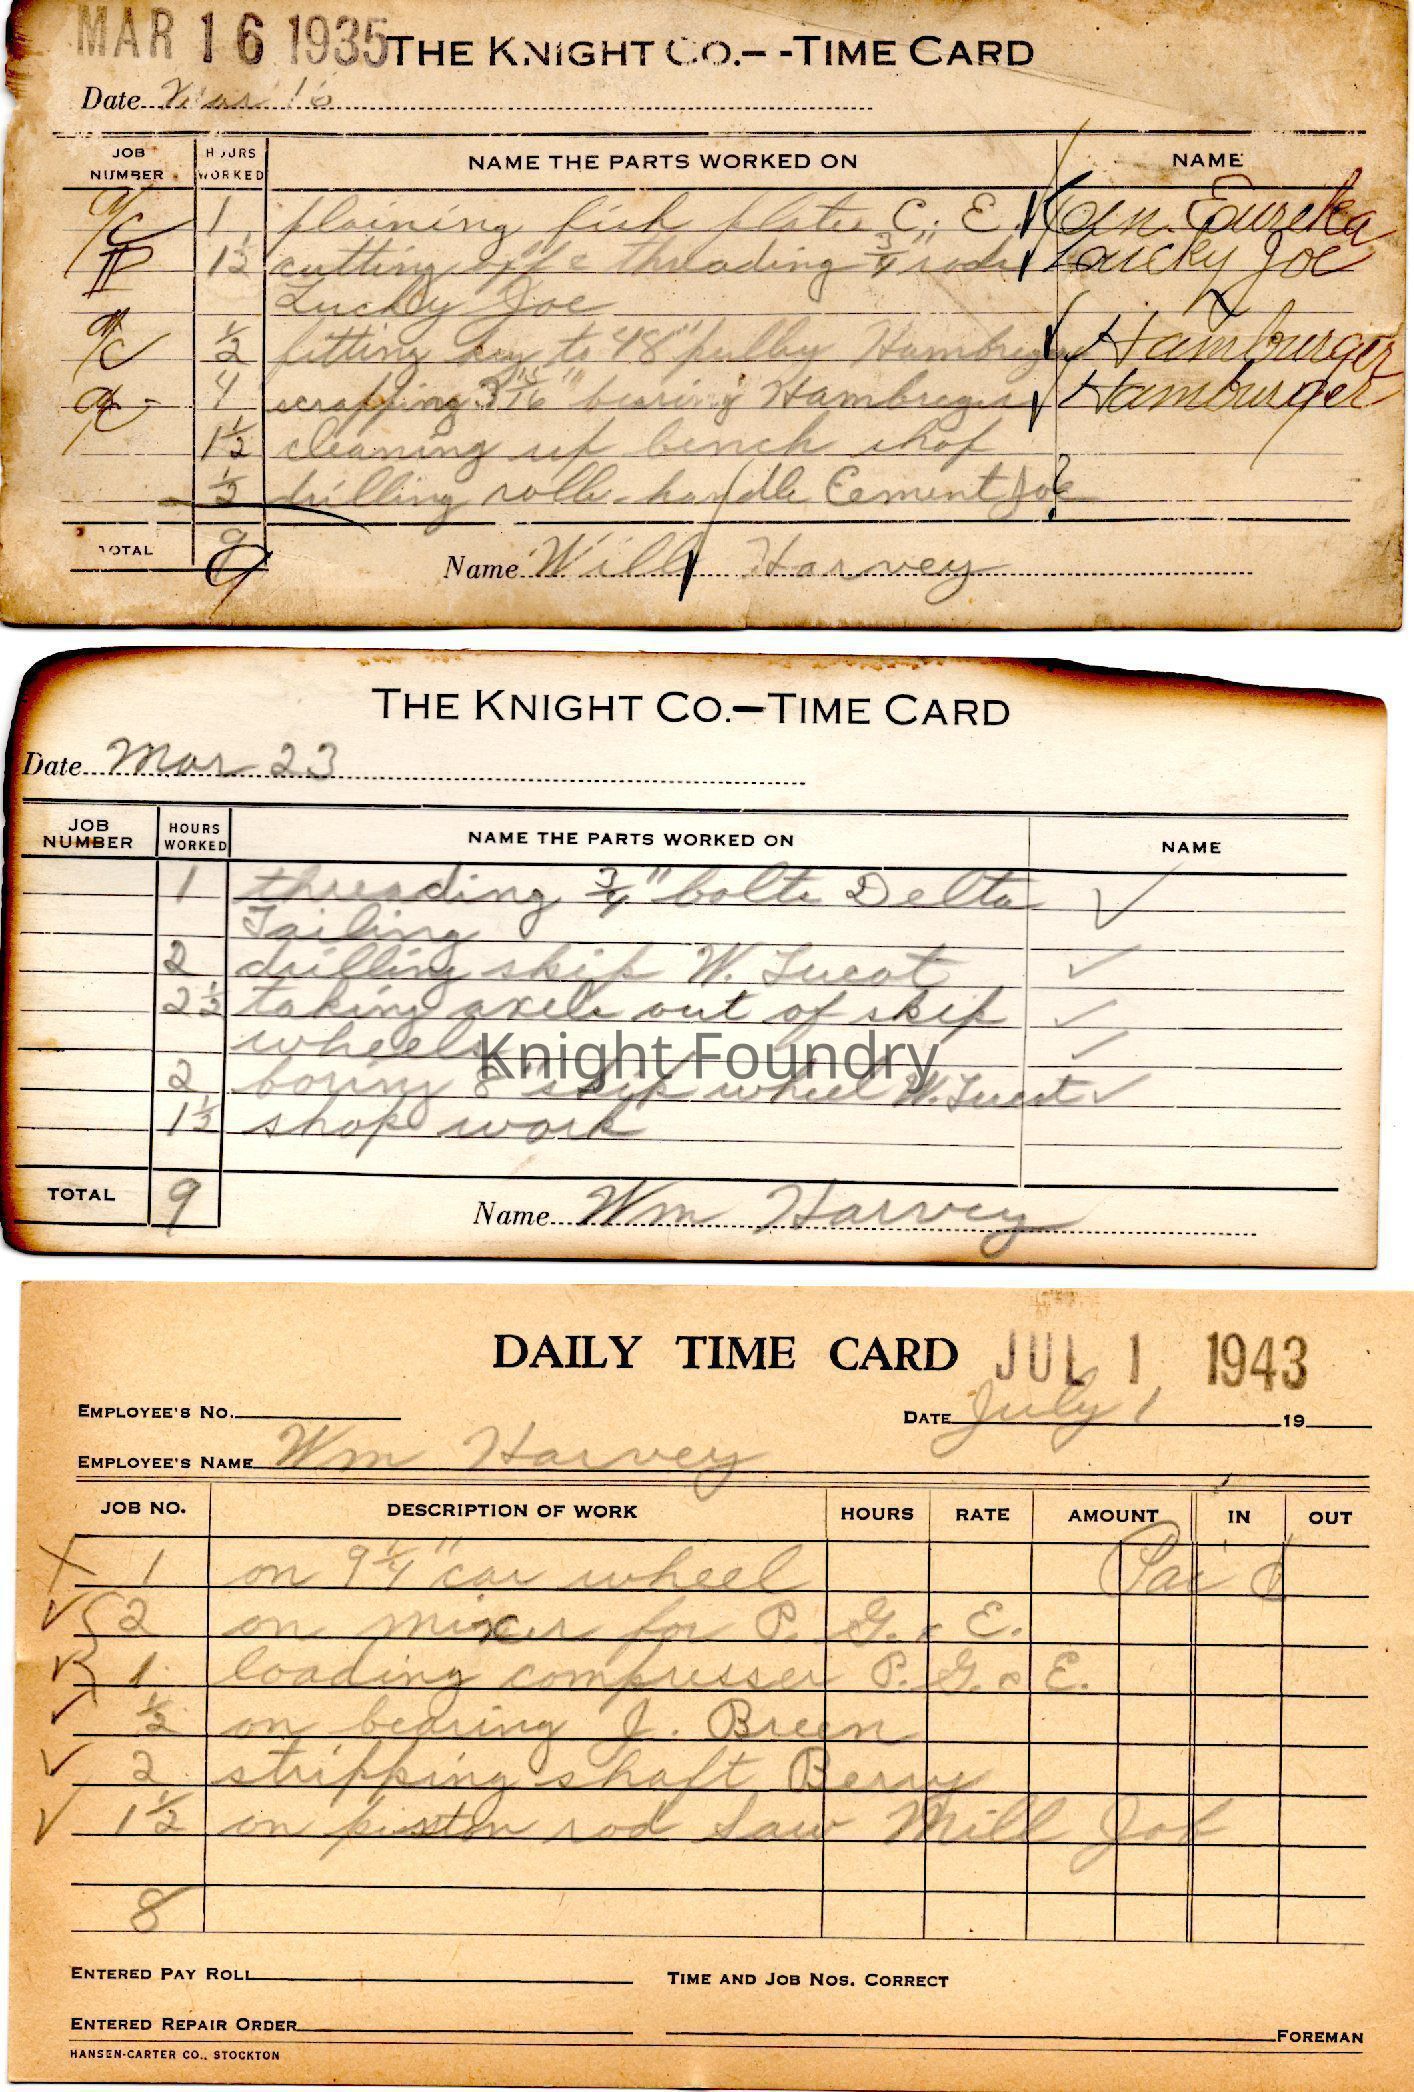 MAR 16 1935
THE KNIGHT CO.- -TIME CARD
Date Mar 16
JOB NUMBER HOURS WORKED NAME THE PARTS WORKED ON NAME
a/c 1 plaining fish plates C. E. Cen. Eureka
1 1/2 cutting off & threading 3/4" rods Lucky Joe
Lucky Joe
a/c 1/2 fitting key to 48" pulley Hambreger Hamburger
a/c 4 scrapping 3 15/16" bearing Hambreger Hamburger
1 1/2 cleaning up bench shop
1/2 drilling rolle-handle Cement Joe ?
TOTAL 9 9
Name Will Harvey
THE KNIGHT CO.—TIME CARD
Date Mar 23
JOB NUMBER HOURS WORKED NAME THE PARTS WORKED ON NAME
1 threading 3/4" bolts Delta
Tailing
2 drilling skip W.
2 1/2 taking axels out of skip
wheels
2 boring 8" skip wheel W.
1 1/2 shop work
TOTAL 9
Name Wm Harvey
Knight Foundry
DAILY TIME CARD JUL 1 1943
EMPLOYEE'S NO. DATE July 1 19
EMPLOYEE'S NAME Wm Harvey
JOB NO. DESCRIPTION OF WORK HOURS RATE AMOUNT IN OUT
1 on 9 1/4" car wheel Paid
2 on mixer for P. G. & E.
1 loading compresser P. G. & E.
1/2 on bearing J. Breen
2 stripping shaft Berry
1 1/2 on piston rod Saw Mill Job
8
ENTERED PAY ROLL TIME AND JOB NOS. CORRECT
ENTERED REPAIR ORDER FOREMAN
HANSEN-CARTER CO., STOCKTON